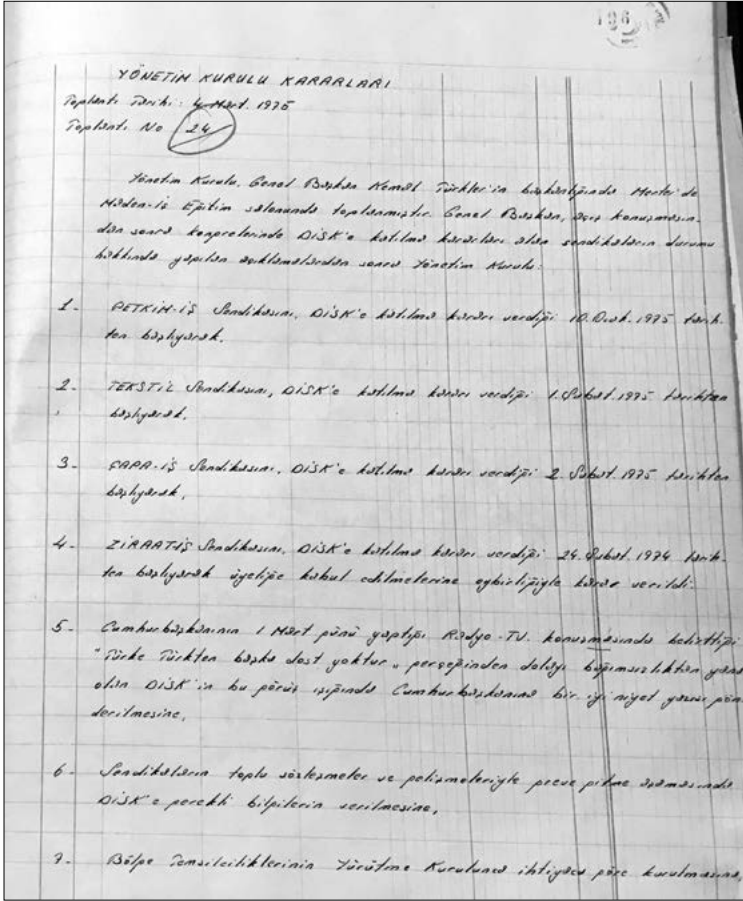 196
YÖNETİM KURULU KARARLARI
Toplantı Tarihi: 4 Mart. 1975
Toplantı No 24
Yönetim Kurulu, Genel Başkan Kemal Türkler'in başkanlığında Merter'de
Maden-İş Eğitim salonunda toplanmıştır. Genel Başkan, açış konuşmasın-
dan sonra kongrelerinde DİSK'e katılma kararları alan sendikaların durumu
hakkında yapılan açıklamalardan sonra Yönetim Kurulu:
1- PETKİM-İŞ Sendikasını, DİSK'e katılma kararı verdiği 10.Ocak.1975 tarih-
ten başlıyarak,
2- TEKSTİL Sendikasını, DİSK'e katılma kararı verdiği 1.Şubat.1975 tarihten
başlıyarak,
3- ÇAPA-İŞ Sendikasını, DİSK'e katılma kararı verdiği 2.Şubat.1975 tarihten
başlıyarak,
4- ZİRAAT-İŞ Sendikasını, DİSK'e katılma kararı verdiği 24.Şubat.1974 tarih-
ten başlıyarak üyeliğe kabul edilmelerine oybirliğiyle karar verildi.
5- Cumhurbaşkanının 1 Mart günü yaptığı Radyo-TV. konuşmasında belirttiği
"Türke Türkten başka dost yoktur" gerçeğinden dolayı bağımsızlıktan yana
olan DİSK'in bu görüş ışığında Cumhurbaşkanına bir iyi niyet yazısı gön
derilmesine,
6- Sendikaların toplu sözleşmeler ve gelişmeleriyle greve gitme aşamasında
DİSK'e gerekli bilgilerin verilmesine,
7- Bölge Temsilciliklerinin Yürütme Kurulunca ihtiyaca göre kurulmasına,